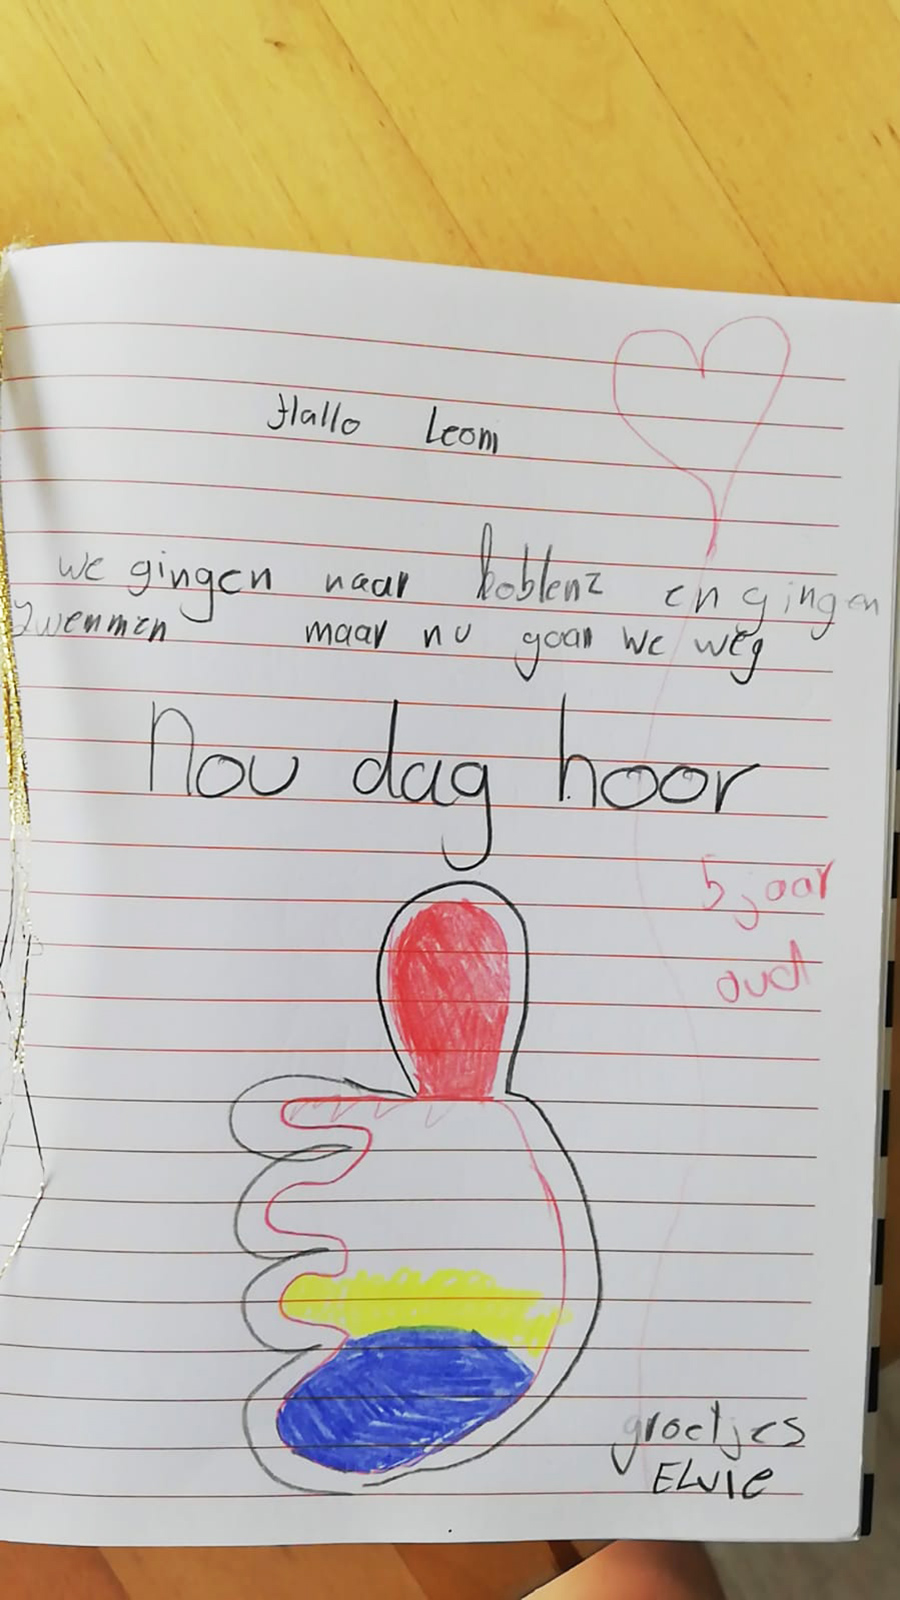 Hallo Leom
we gingen naar koblenz en gingen
zwemmen maar nu gaan we weg
Nou dag hoor
5 jaar
oud
groetjes
ELVIE